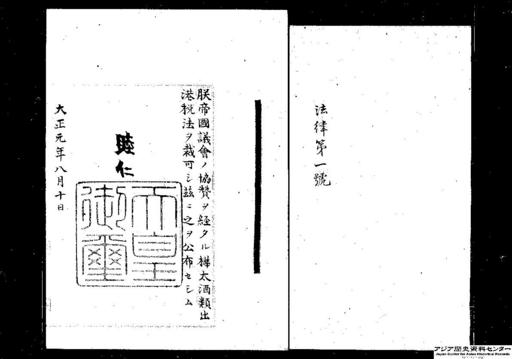 法律第一號
朕帝國議會ノ協賛ヲ経タル樺太酒類出
港税法ヲ裁可シ玆ニ之ヲ公布セシム
睦仁
天皇
御璽
大正元年八月十日
アジア歴史資料センター
Japan Center for Asian Historical Records